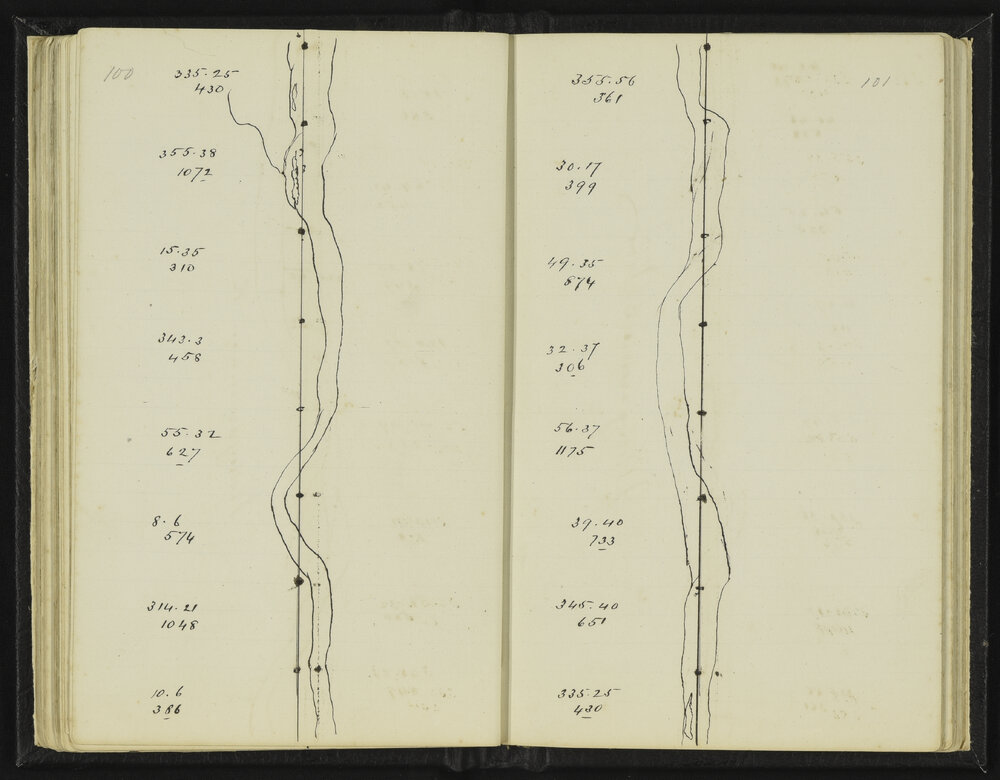 100
335·25
430
355·38
1072
15·35
310
343·3
458
55·32
627
8·6
574
314·21
1048
10·6
386
101
355·56
361
30·17
399
49·35
874
32·37
306
56·37
1175
39·40
733
345·40
651
335·25
430